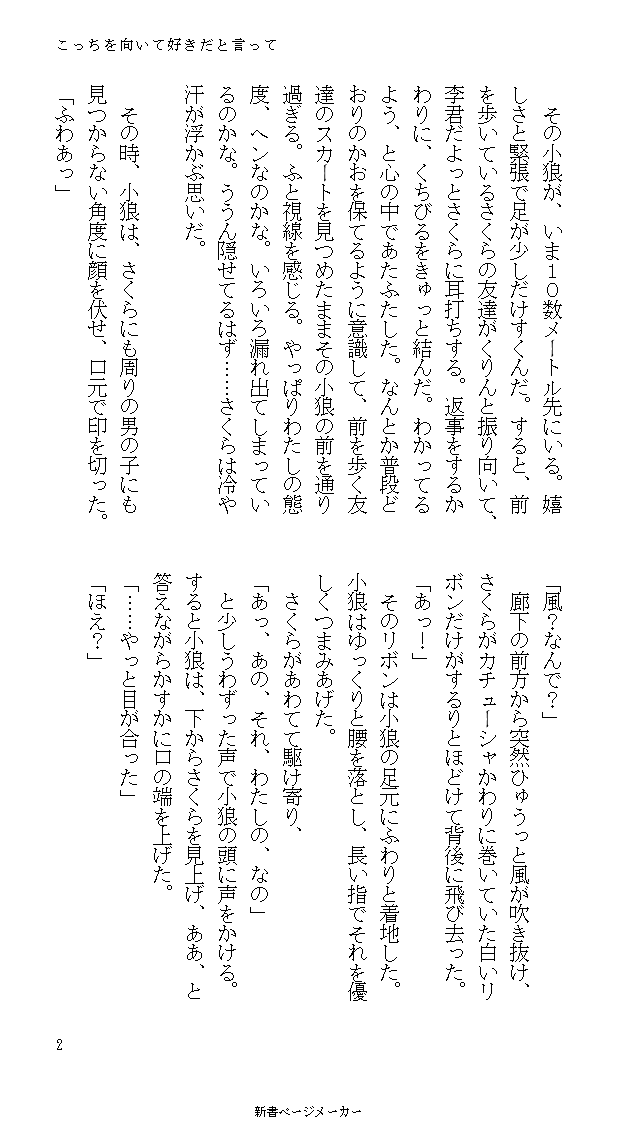 こっちを向いて好きだと言って
　その小狼が、いま１０数メートル先にいる。嬉
しさと緊張で足が少しだけすくんだ。すると、前
を歩いているさくらの友達がくりんと振り向いて、
李君だよっとさくらに耳打ちする。返事をするか
わりに、くちびるをきゅっと結んだ。わかってる
よう、と心の中であたふたした。なんとか普段ど
おりのかおを保てるように意識して、前を歩く友
達のスカートを見つめたままその小狼の前を通り
過ぎる。ふと視線を感じる。やっぱりわたしの態
度、ヘンなのかな。いろいろ漏れ出てしまってい
るのかな。ううん隠せてるはず……さくらは冷や
汗が浮かぶ思いだ。
　その時、小狼は、さくらにも周りの男の子にも
見つからない角度に顔を伏せ、口元で印を切った。
「ふわあっ」
「風？なんで？」
　廊下の前方から突然ひゅうっと風が吹き抜け、
さくらがカチューシャかわりに巻いていた白いリ
ボンだけがするりとほどけて背後に飛び去った。
「あっ！」
　そのリボンは小狼の足元にふわりと着地した。
小狼はゆっくりと腰を落とし、長い指でそれを優
しくつまみあげた。
　さくらがあわてて駆け寄り、
「あっ、あの、それ、わたしの、なの」
　と少しうわずった声で小狼の頭に声をかける。
すると小狼は、下からさくらを見上げ、ああ、と
答えながらかすかに口の端を上げた。
「……やっと目が合った」
「ほえ？」
2
新書ページメーカー